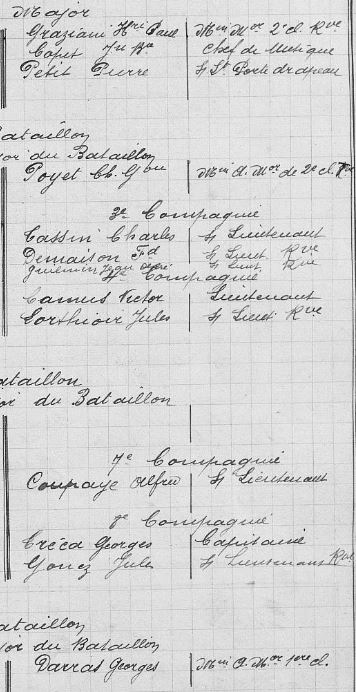 Major
Graziani Hri Paul Min Mor 2e cl. Rve
Copet Jn Bte Chef de Musique
Petit Pierre S/ Lt Porte drapeau
ataillon
or du Bataillon
Poyet Ch. Gon Min A. Mor de 2e cl. Rve
3e Compagnie
Cassin Charles S/ Lieutenant
Demaison Fd S/ Lieut. Rve
S/ Lieut. Rve
4e Compagnie
Camus Victor Lieutenant
Sorthioir Jules S/ Lieut. Rve
ataillon
or du Bataillon
7e Compagnie
Coupaye Alfred S/ Lieutenant
8e Compagnie
Créca Georges Capitaine
Gonez Jules S/ Lieutenant Rve
ataillon
or du Bataillon
Darras Georges Min A. Mor 1ere cl.